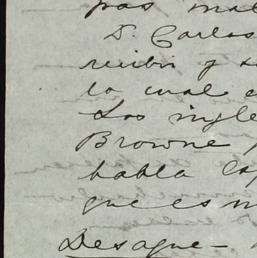 pas mal
D. Carlos
recibí y s
la cual e
Los ingle
Browne
habla Es
que es m
Desague -